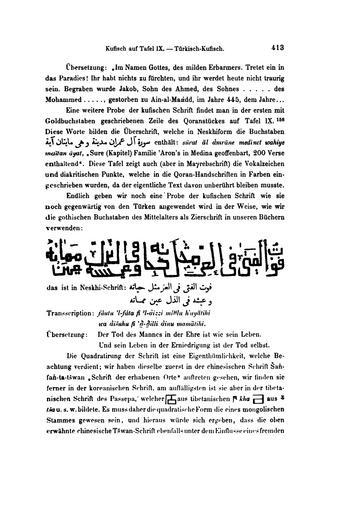 Kufisch auf Tafel IX. — Türkisch-Kufisch. 413
Übersetzung: „Im Namen Gottes, des milden Erbarmers. Tretet ein in
das Paradies! Ihr habt nichts zu fürchten, und ihr werdet heute nicht traurig
sein. Begraben wurde Jakob, Sohn des Ahmed, des Sohnes . . . . . des
Mohammed . . . . ., gestorben zu Ain-al-Masdd, im Jahre 445, dem Jahre...
Eine weitere Probe der kufischen Schrift findet man in der ersten mit
Goldbuchstaben geschriebenen Zeile des Qoranstückes auf Tafel IX.
Diese Worte bilden die Überschrift, welche in Neskhiform die Buchstaben
سورة آل عمران مدينة وهى مايتان آية enthält: sūrat āl āmrāne medīnet wahiye
maītān āyat, „Sure (Kapitel) Familie 'Aron's in Medina geoffenbart, 200 Verse
enthaltend“. Diese Tafel zeigt auch (aber in Mayrebschrift) die Vokalzeichen
und diakritischen Punkte, welche in die Qoran-Handschriften in Farben ein-
geschrieben wurden, da der eigentliche Text davon unberührt bleiben musste.
Endlich geben wir noch eine Probe der kufischen Schrift wie sie
noch gegenwärtig von den Türken angewendet wird in der Weise, wie wir
die gothischen Buchstaben des Mittelalters als Zierschrift in unseren Büchern
verwenden:
das ist in Neskhi-Schrift: فوت الفتى فى العز مثل حياته
وعيشه فى الذل عين مماته
Transscription: fāutu 'l-fāta fī 'l-āizzi miṯlu ḥayātihi
wa āišuhu fī 'ḏ-ḏilli āinu mamātihi.
Übersetzung: Der Tod des Mannes in der Ehre ist wie sein Leben.
Und sein Leben in der Erniedrigung ist der Tod selbst.
Die Quadratirung der Schrift ist eine Eigenthümlichkeit, welche Be-
achtung verdient; wir haben dieselbe zuerst in der chinesischen Schrift Šaṅ-
faṅ-ta-tšwan „Schrift der erhabenen Orte“ auftreten gesehen, wir finden sie
ferner in der koreanischen Schrift, am auffälligsten ist sie aber in der tibeta-
nischen Schrift des Passepa, welcher aus tibetanischen kha aus
tša u. s. w. bildete. Es muss daher die quadratische Form die eines mongolischen
Stammes gewesen sein, und hieraus würde sich ergeben, dass die oben
erwähnte chinesische Tšwan-Schrift ebenfalls unter dem Einflusse eines fremden